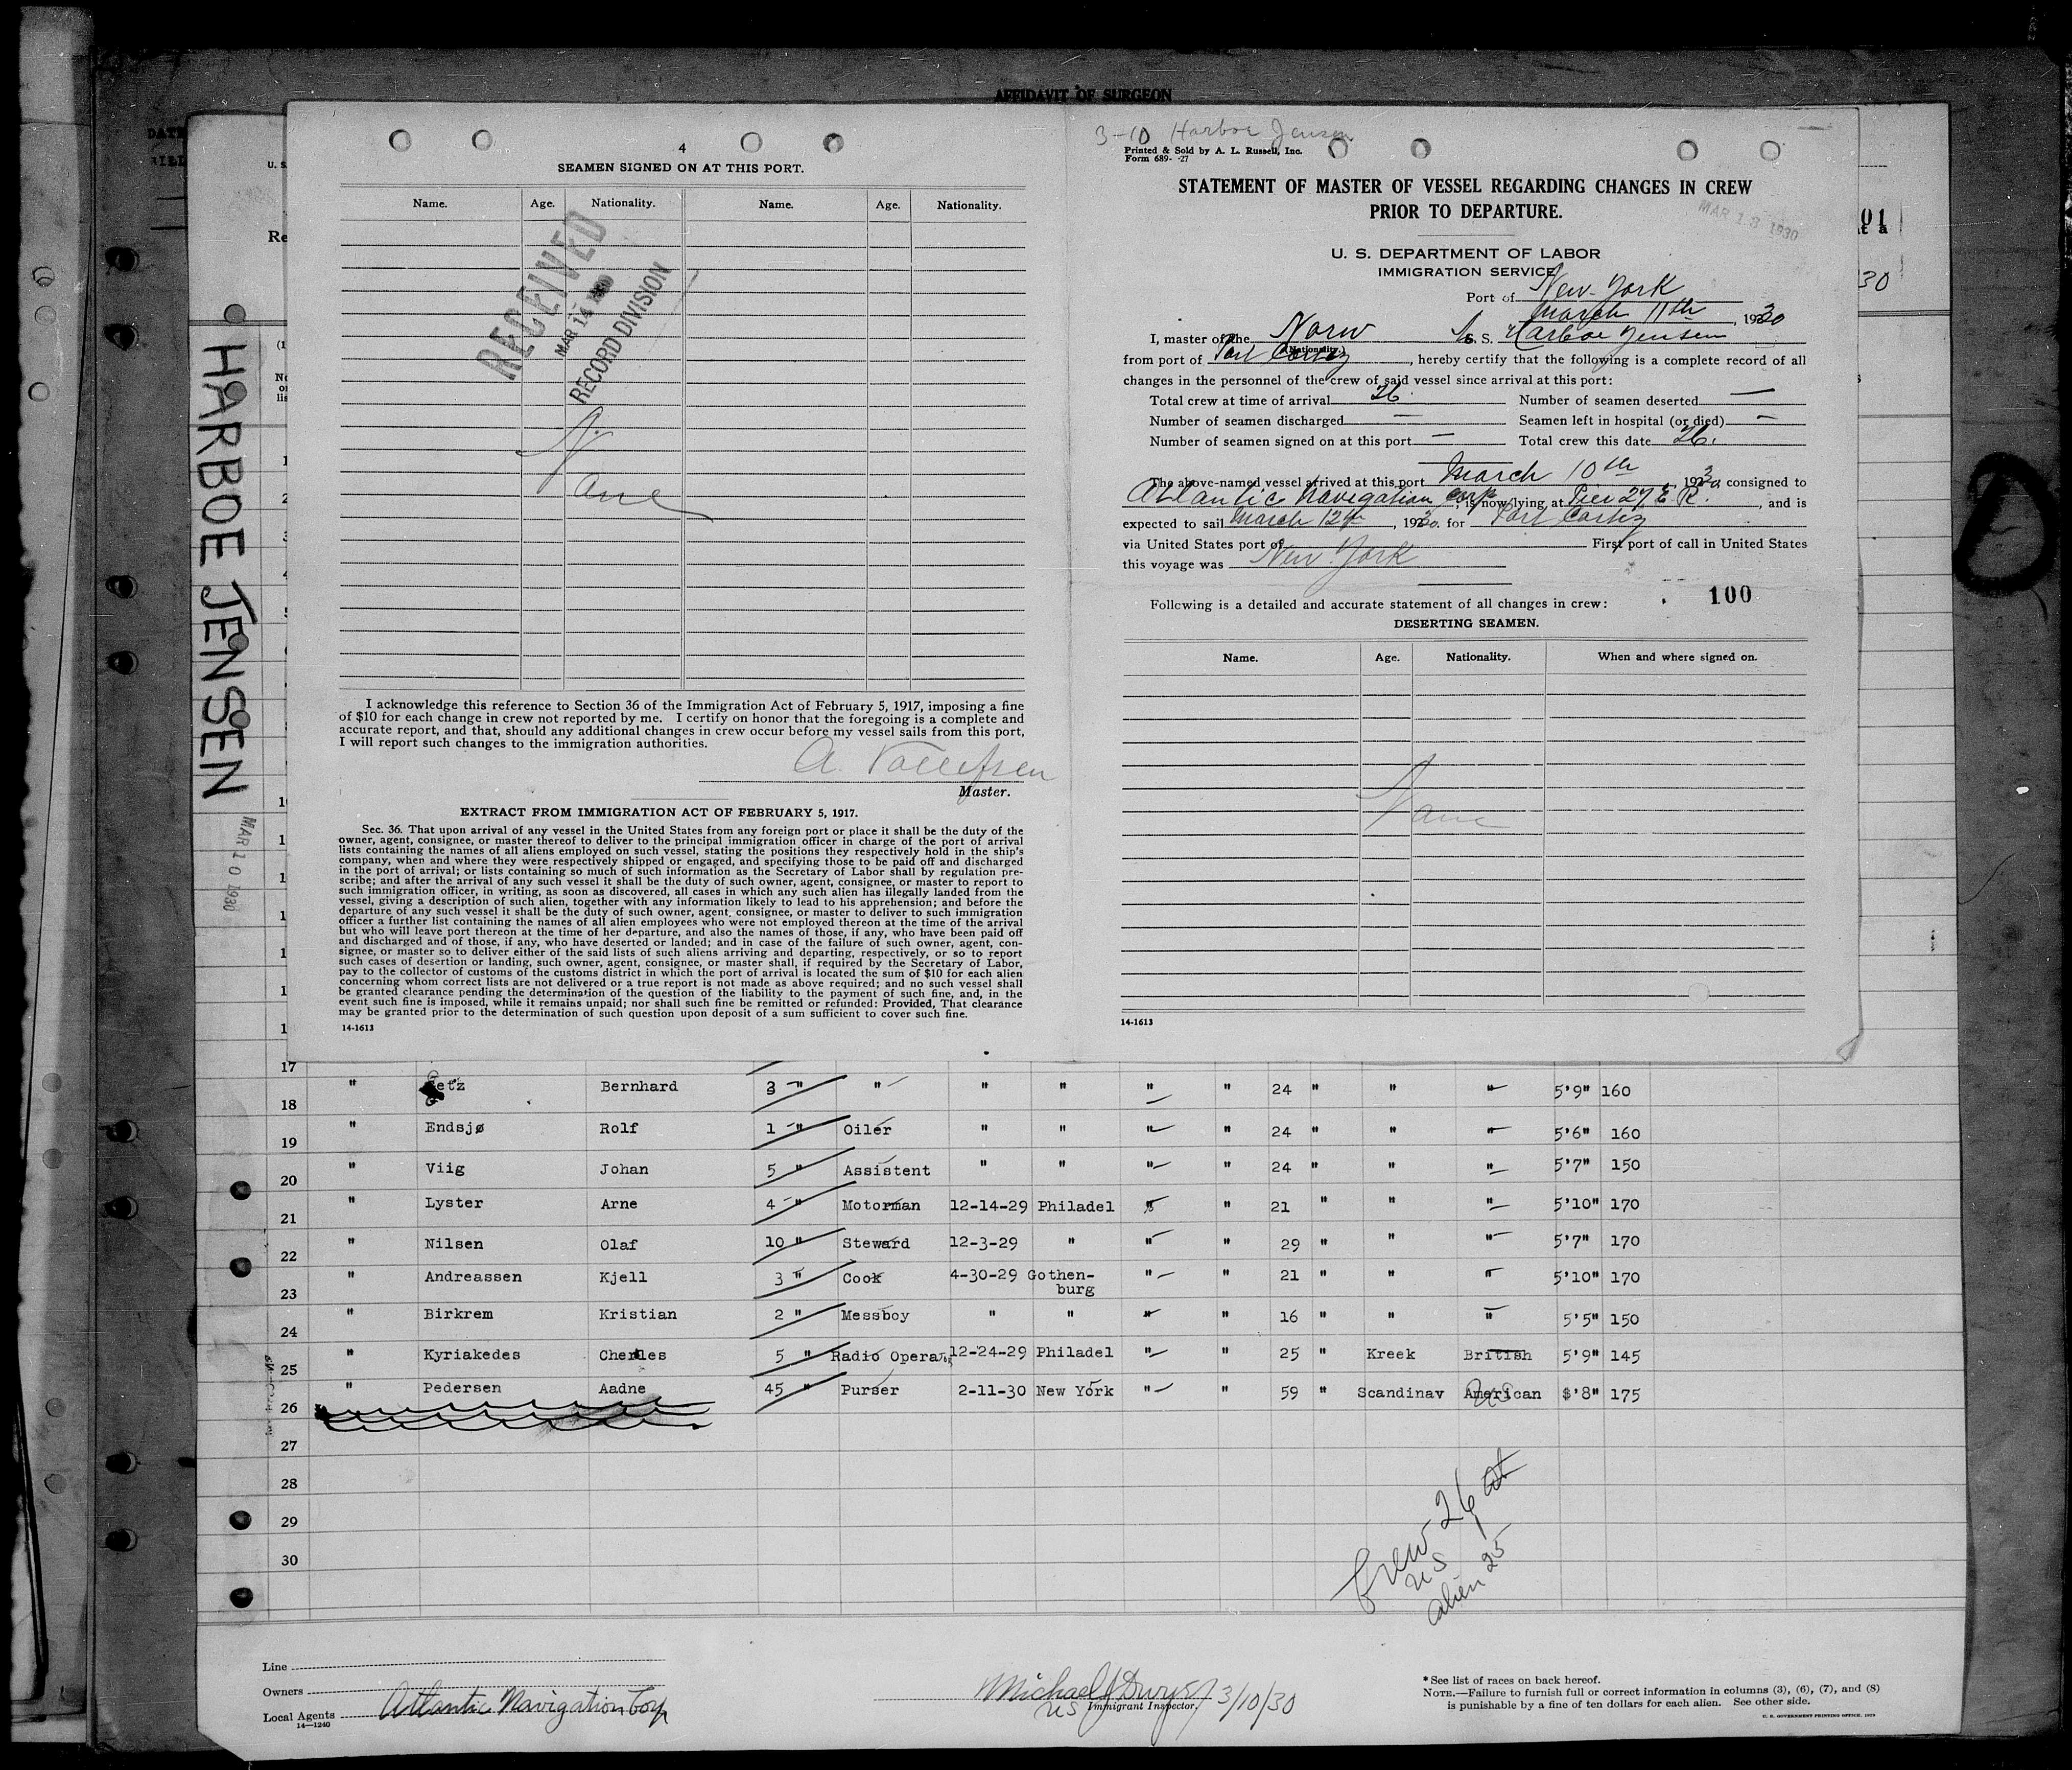 AFFIDAVIT OF SURGEON
4
SEAMEN SIGNED ON AT THIS PORT.
Name. Age. Nationality. Name. Age. Nationality.
RECEIVED
MAR 14
RECORD DIVISION
None
I acknowledge this reference to Section 36 of the Immigration Act of February 5, 1917, imposing a fine
of $10 for each change in crew not reported by me. I certify on honor that the foregoing is a complete and
accurate report, and that, should any additional changes in crew occur before my vessel sails from this port,
I will report such changes to the immigration authorities.
A.
Master.
EXTRACT FROM IMMIGRATION ACT OF FEBRUARY 5, 1917.
Sec. 36. That upon arrival of any vessel in the United States from any foreign port or place it shall be the duty of the
owner, agent, consignee, or master thereof to deliver to the principal immigration officer in charge of the port of arrival
lists containing the names of all aliens employed on such vessel, stating the positions they respectively hold in the ship's
company, when and where they were respectively shipped or engaged, and specifying those to be paid off and discharged
in the port of arrival; or lists containing so much of such information as the Secretary of Labor shall by regulation pre-
scribe; and after the arrival of any such vessel it shall be the duty of such owner, agent, consignee, or master to report to
such immigration officer, in writing, as soon as discovered, all cases in which any such alien has illegally landed from the
vessel, giving a description of such alien, together with any information likely to lead to his apprehension; and before the
departure of any such vessel it shall be the duty of such owner, agent, consignee, or master to deliver to such immigration
officer a further list containing the names of all alien employees who were not employed thereon at the time of the arrival
but who will leave port thereon at the time of her departure, and also the names of those, if any, who have been paid off
and discharged and of those, if any, who have deserted or landed; and in case of the failure of such owner, agent, con-
signee, or master so to deliver either of the said lists of such aliens arriving and departing, respectively, or so to report
such cases of desertion or landing, such owner, agent, consignee, or master shall, if required by the Secretary of Labor,
pay to the collector of customs of the customs district in which the port of arrival is located the sum of $10 for each alien
concerning whom correct lists are not delivered or a true report is not made as above required; and no such vessel shall
be granted clearance pending the determination of the question of the liability to the payment of such fine, and, in the
event such fine is imposed, while it remains unpaid; nor shall such fine be remitted or refunded: Provided, That clearance
may be granted prior to the determination of such question upon deposit of a sum sufficient to cover such fine.
14-1613
3-10 Harboe Jensen
Printed & Sold by A. L. Russell, Inc.
Form 689- -27
STATEMENT OF MASTER OF VESSEL REGARDING CHANGES IN CREW
PRIOR TO DEPARTURE.
MAR 13 1930
U. S. DEPARTMENT OF LABOR
IMMIGRATION SERVICE
Port of New York
March 11th, 1930
I, master of the Norw S. S. Harboe Jensen
(Nationality.)
from port of Port Cortez, hereby certify that the following is a complete record of all
changes in the personnel of the crew of said vessel since arrival at this port:
Total crew at time of arrival 26. Number of seamen deserted —
Number of seamen discharged — Seamen left in hospital (or died) —
Number of seamen signed on at this port — Total crew this date 26.
The above-named vessel arrived at this port March 10th 1930, consigned to
Atlantic Navigation Corp, is now lying at Pier 27 E R., and is
expected to sail March 12th, 1930. for Port Cortez
via United States port of First port of call in United States
this voyage was New York
100
Following is a detailed and accurate statement of all changes in crew:
DESERTING SEAMEN.
Name. Age. Nationality. When and where signed on.
None
14-1613
HARBOE JENSEN
MAR 10 1930
17
18 " etz Bernhard 3 " " " " " " 24 " " " 5'9" 160
19 " Endsjø Rolf 1 " Oiler " " " " 24 " " " 5'6" 160
20 " Viig Johan 5 " Assistent " " " " 24 " " " 5'7" 150
21 " Lyster Arne 4 " Motorman 12-14-29 Philadel " " 21 " " " 5'10" 170
22 " Nilsen Olaf 10 " Steward 12-3-29 " " " 29 " " " 5'7" 170
23 " Andreassen Kjell 3 " Cook 4-30-29 Gothen-
burg " " 21 " " " 5'10" 170
24 " Birkrem Kristian 2 " Messboy " " " " 16 " " " 5'5" 150
25 " Kyriakedes Charles 5 " Radio Operator 12-24-29 Philadel " " 25 " Kreek British 5'9" 145
26 " Pedersen Aadne 45 " Purser 2-11-30 New York " " 59 " Scandinav American $'8" 175
US
27
28
29
30
Crew 26 at
US
alien 25
Line
Owners
Local Agents Atlantic Navigation Corp
14—1240
Michael J Dwyer 3/10/30
US Immigrant Inspector.
* See list of races on back hereof.
NOTE.—Failure to furnish full or correct information in columns (3), (6), (7), and (8)
is punishable by a fine of ten dollars for each alien. See other side.
U. S. GOVERNMENT PRINTING OFFICE. 1929